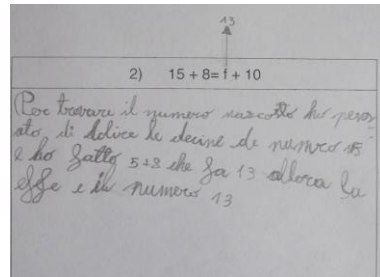 13
2) 15 + 8= f + 10
Per trovare il numero nascosto ho pensa
ato di dolice le decine de numero 15
e ho fatto 5+8 che fa 13 allora la
effe e il numero 13